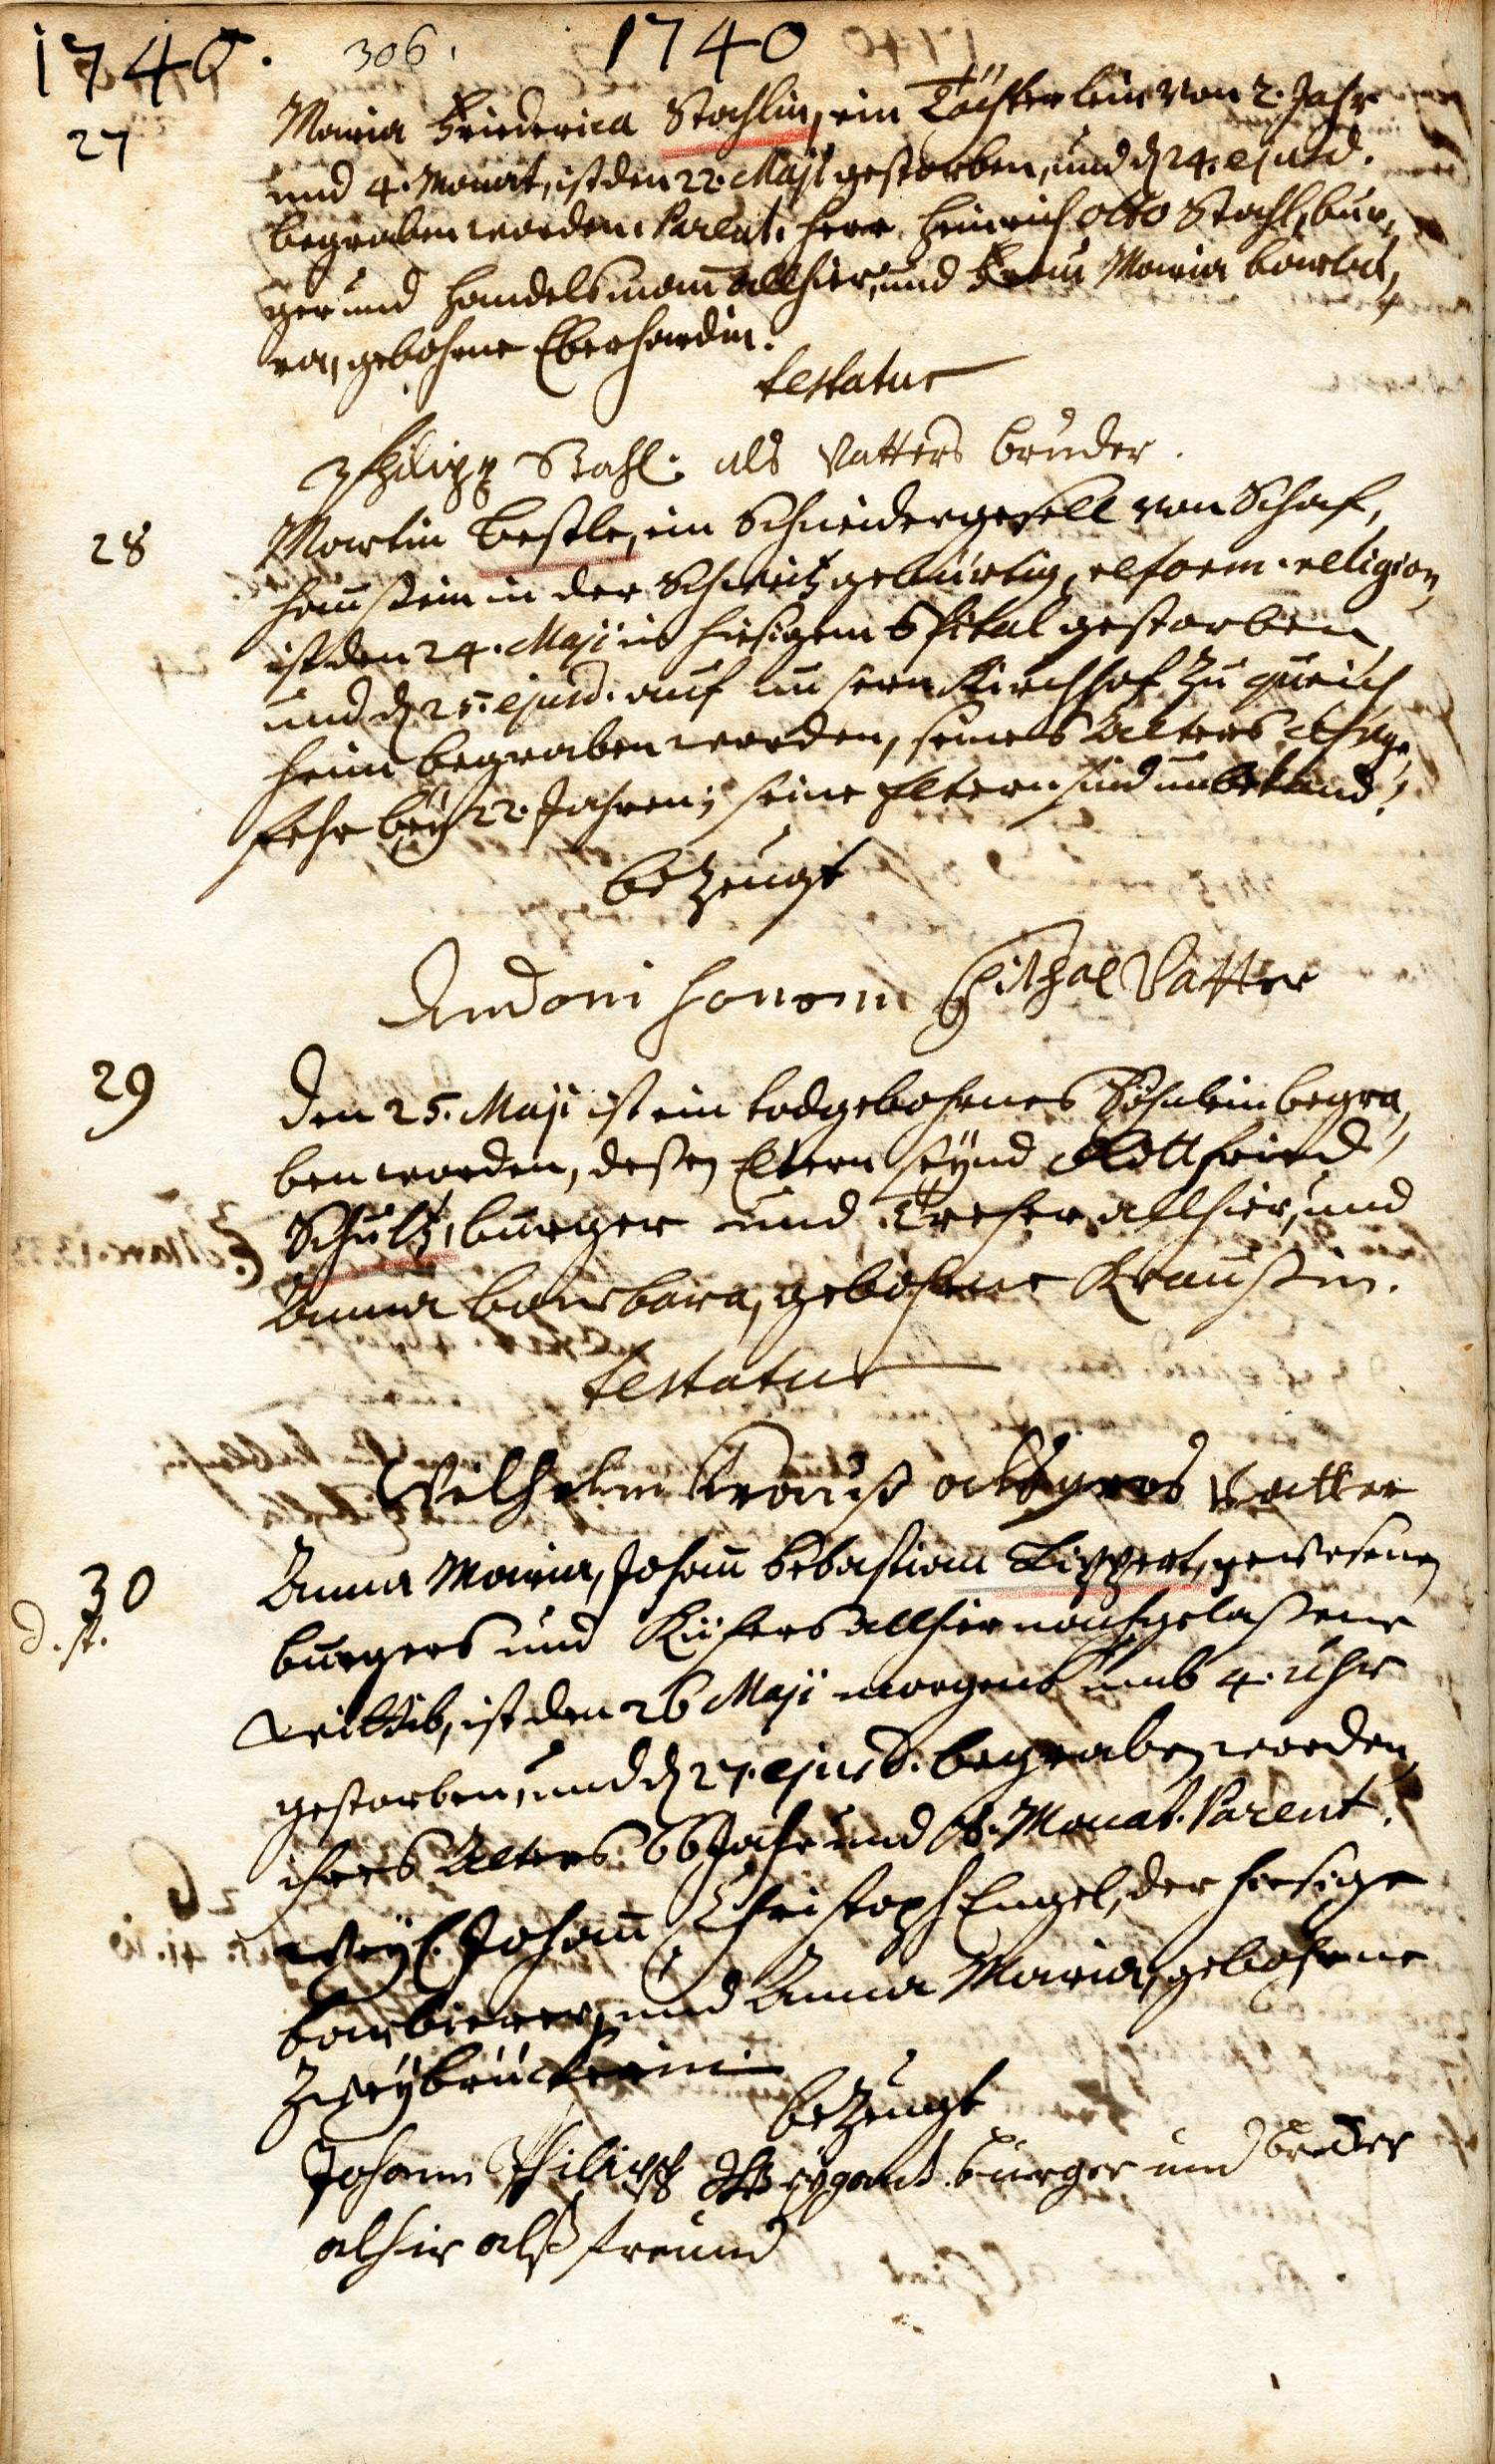 1740. 306. 1740
27 Maria Friederica Stahlin, ein Töchterlein von 2. Jahr
und 4. Monat, ist den 22. Maji gestorben, und d. 24. ejusd.
begraben worden. Parent. Herr Heinrich Otto Stahl, bur,
ger und Handelsmann allhier, und Frau Maria Barba,
ra, gebohrne Eberhardin.
testatur
Philipp Stahl. als Vatters bruder.
28 Martin Bestle, ein Schneidergesell von Schaf,
haußen in der Schweitz gebürtig, reform. religion,
ist den 24. Maji in hiesigem Spital gestorben,
und d. 25. ejusd. auf unsern Kirchhof zu Queich
heim begraben worden, seines Alters ohnge,
fehr bey 22. Jahren; seine Eltern sind unbekand.
bezeugt
Andoni Spithal Vatter
29 Den 25. Maji ist ein todgebohrnes Söhnlein begra,
ben worden, deßen Eltern seynd Gottfried
Schultz, burger und Dreher allhier, und
Anna Barbara, gebohrne Kraußin.
testatur
Wilhelm Krauß als gros Vatter
30 Anna Maria, Johann Sebastian Lippert, gewesenen
d. st. burgers und Küfers allhier nachgelaßene
Wittib, ist den 26 Maji morgens umb 4. Uhr
gestorben, und d. 27. ejusd. begraben worden,
ihres Alters 66 Jahr und 8. Monat. Parent.
weyl. Johann Christoph Engel, der hiesige
barbierer, und Anna Maria, gebohrne
Zweybrückerin.
bezeugt
Johann Philipp Weygant burger und
alhir alß freund